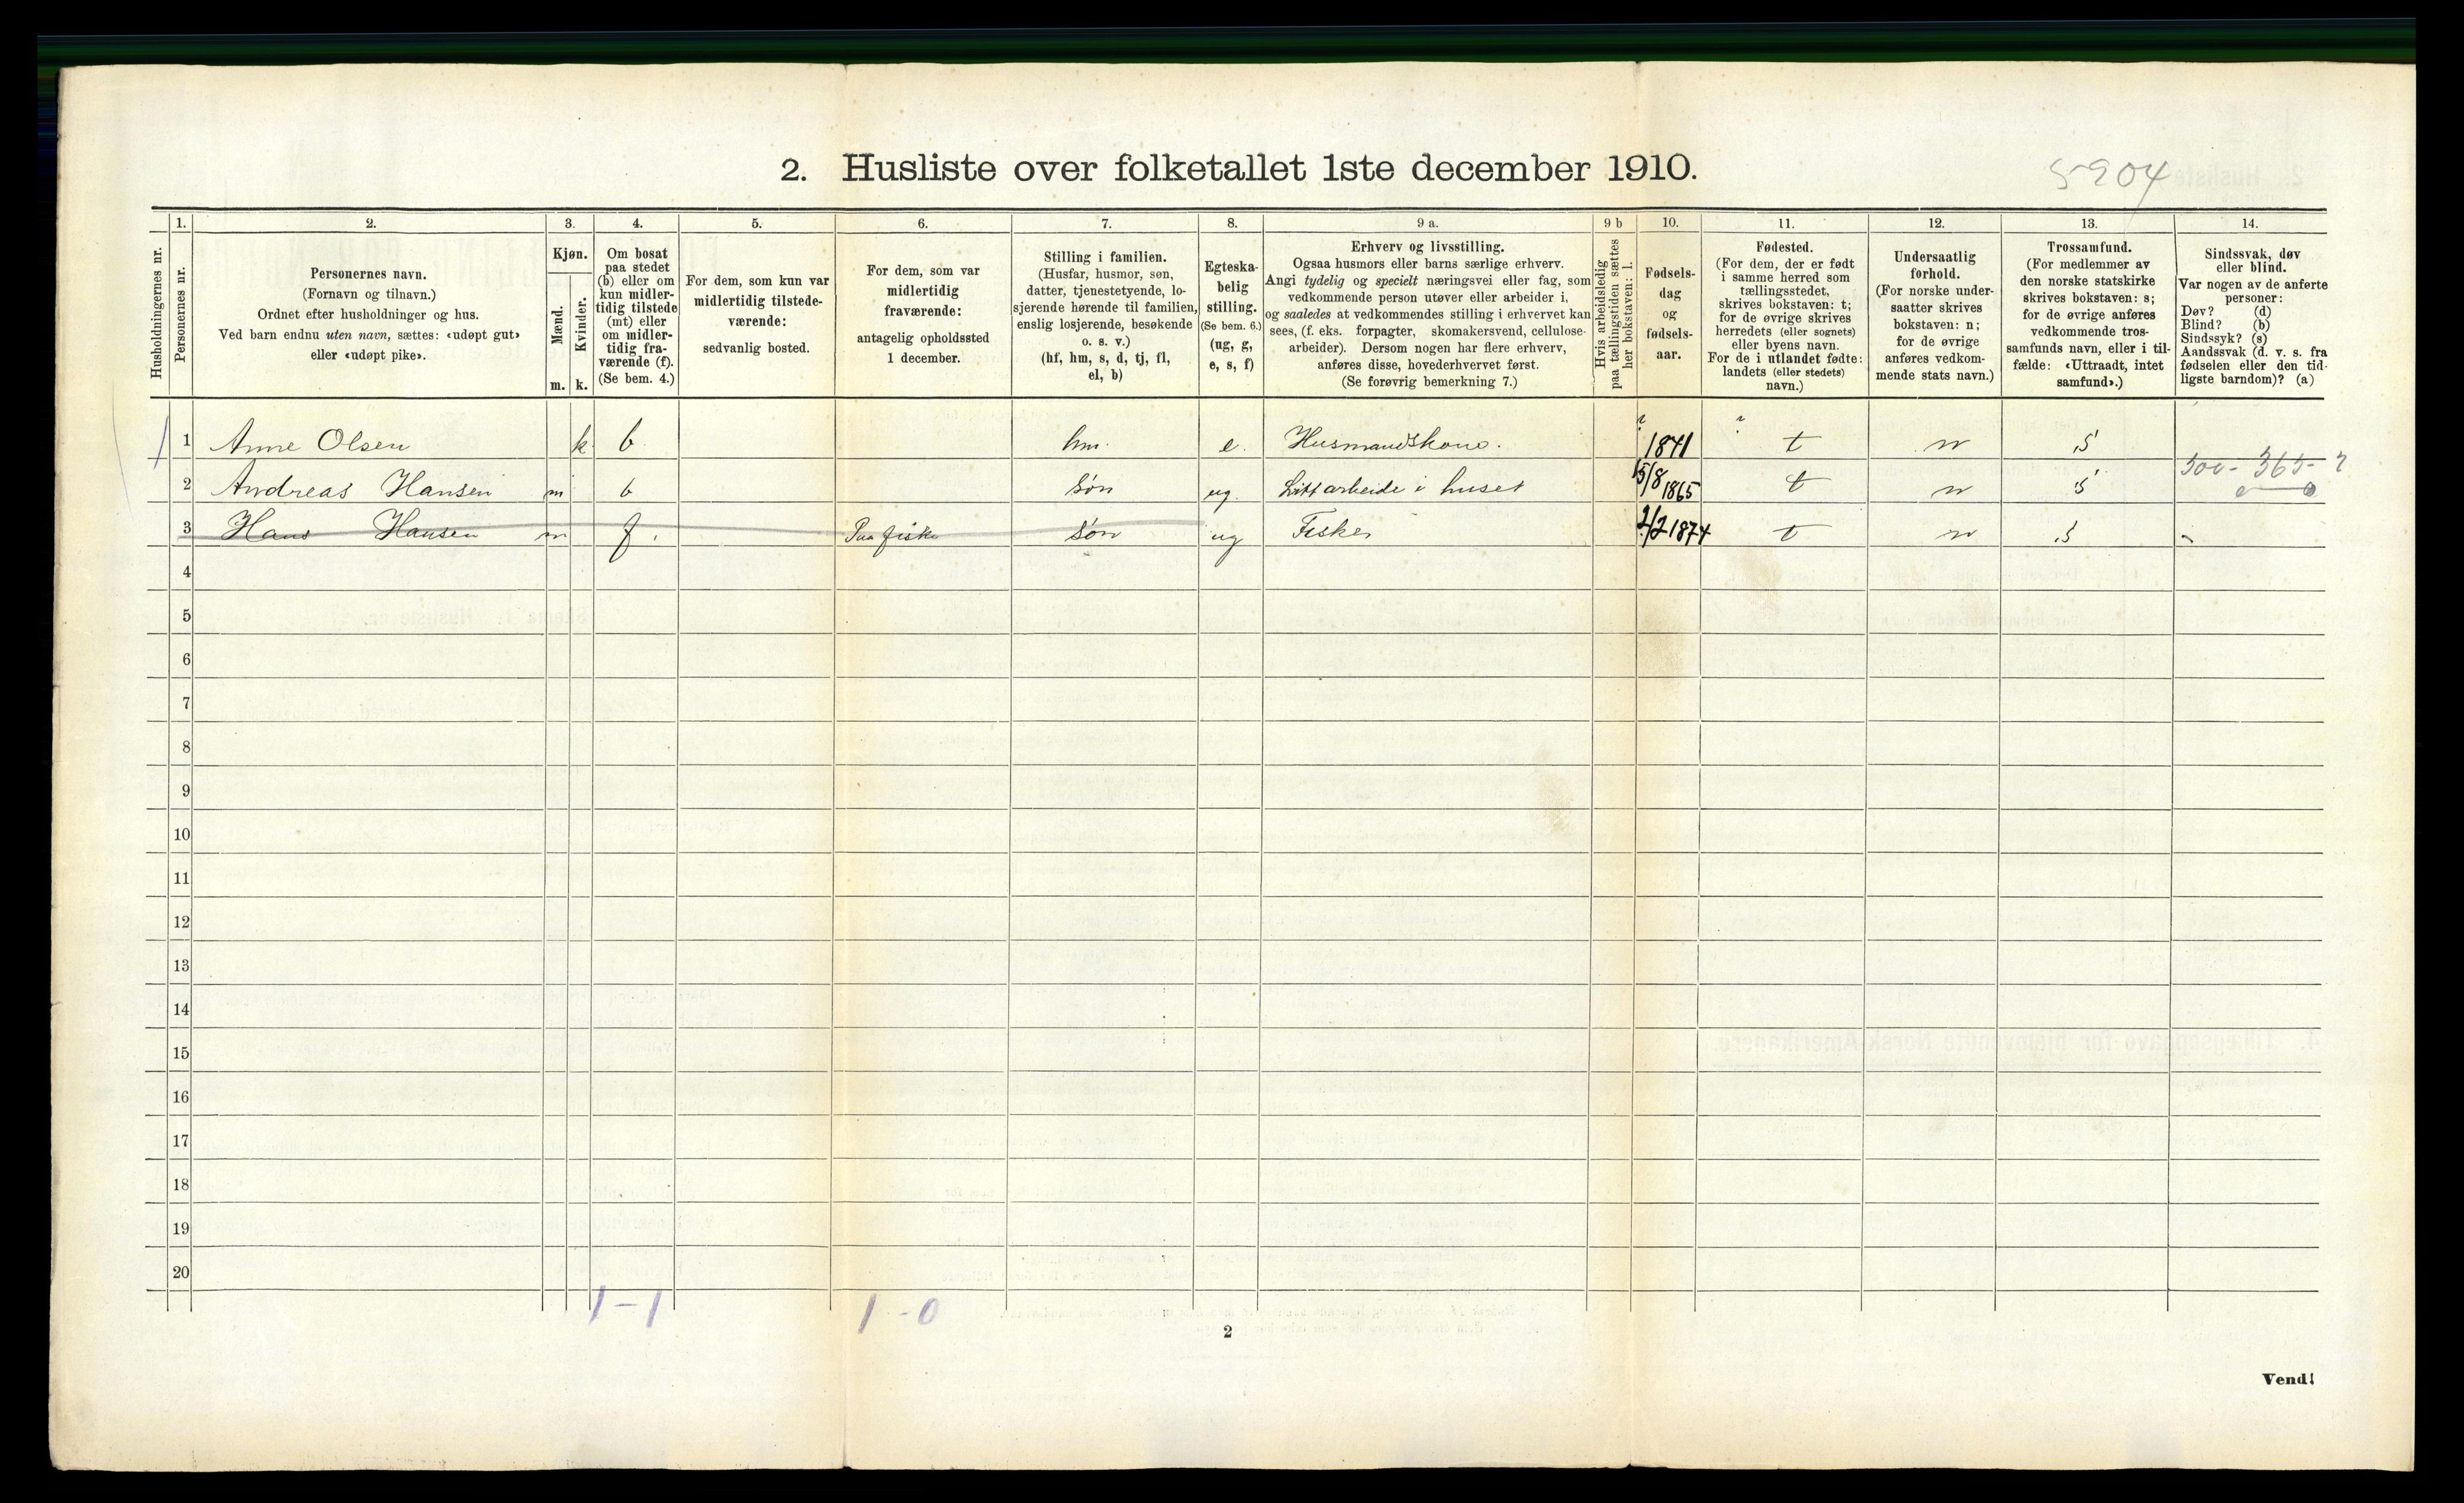 2. Husliste over folketallet 1ste december 1910.
5904
Husholdningernes nr.
1.
Personernes nr.
2.
Personernes navn.
(Fornavn og tilnavn.)
Ordnet efter husholdninger og hus.
Ved barn endnu uten navn, sættes: «udøpt gut»
eller «udøpt pike».
3.
Kjøn.
Mænd.
Kvinder.
m. k.
4.
Om bosat
paa stedet
(b) eller om
kun midler-
tidig tilstede
(mt) eller
om midler-
tidig fra-
værende (f).
(Se bem. 4.)
5.
For dem, som kun var
midlertidig tilstede-
værende:
sedvanlig bosted.
6.
For dem, som var
midlertidig
fraværende:
antagelig opholdssted
1 december.
7.
Stilling i familien.
(Husfar, husmor, søn,
datter, tjenestetyende, lo-
sjerende hørende til familien,
enslig losjerende, besøkende
o. s. v.)
(hf, hm, s, d, tj, fl,
el, b)
8.
Egteska-
belig
stilling.
(Se bem. 6.)
(ug, g,
e, s, f)
9 a.
Erhverv og livsstilling.
Ogsaa husmors eller barns særlige erhverv.
Angi tydelig og specielt næringsvei eller fag, som
vedkommende person utøver eller arbeider i,
og saaledes at vedkommendes stilling i erhvervet kan
sees, (f. eks. forpagter, skomakersvend, cellulose-
arbeider). Dersom nogen har flere erhverv,
anføres disse, hovederhvervet først.
(Se forøvrig bemerkning 7.)
9 b
Hvis arbeidsledig
paa tællingstiden sættes
her bokstaven: l.
10.
Fødsels-
dag
og
fødsels-
aar.
11.
Fødested.
(For dem, der er født
i samme herred som
tællingsstedet,
skrives bokstaven: t;
for de øvrige skrives
herredets (eller sognets)
eller byens navn.
For de i utlandet fødte:
landets (eller stedets)
navn.)
12.
Undersaatlig
forhold.
(For norske under-
saatter skrives
bokstaven: n;
for de øvrige
anføres vedkom-
mende stats navn.)
13.
Trossamfund.
(For medlemmer av
den norske statskirke
skrives bokstaven: s;
for de øvrige anføres
vedkommende tros-
samfunds navn, eller i til-
fælde: «Uttraadt, intet
samfund».)
14.
Sindssvak, døv
eller blind.
Var nogen av de anførte
personer:
Døv? (d)
Blind? (b)
Sindssyk? (s)
Aandssvak (d. v. s. fra
fødselen eller den tid-
ligste barndom)? (a)
1 Anne Olsen k. b. hm. e. Husmandskone. 1841 t n s
2 Andreas Hansen m b søn ug. Litt arbeide i huset 15/8 1865 t n s 500 - 365 -
3 Hans Hansen m f. Paa fiske søn ug Fisker 2/2 1874 t n s -
4
5
6
7
8
9
10
11
12
13
14
15
16
17
18
19
20
1-1 1-0
2
Vend!